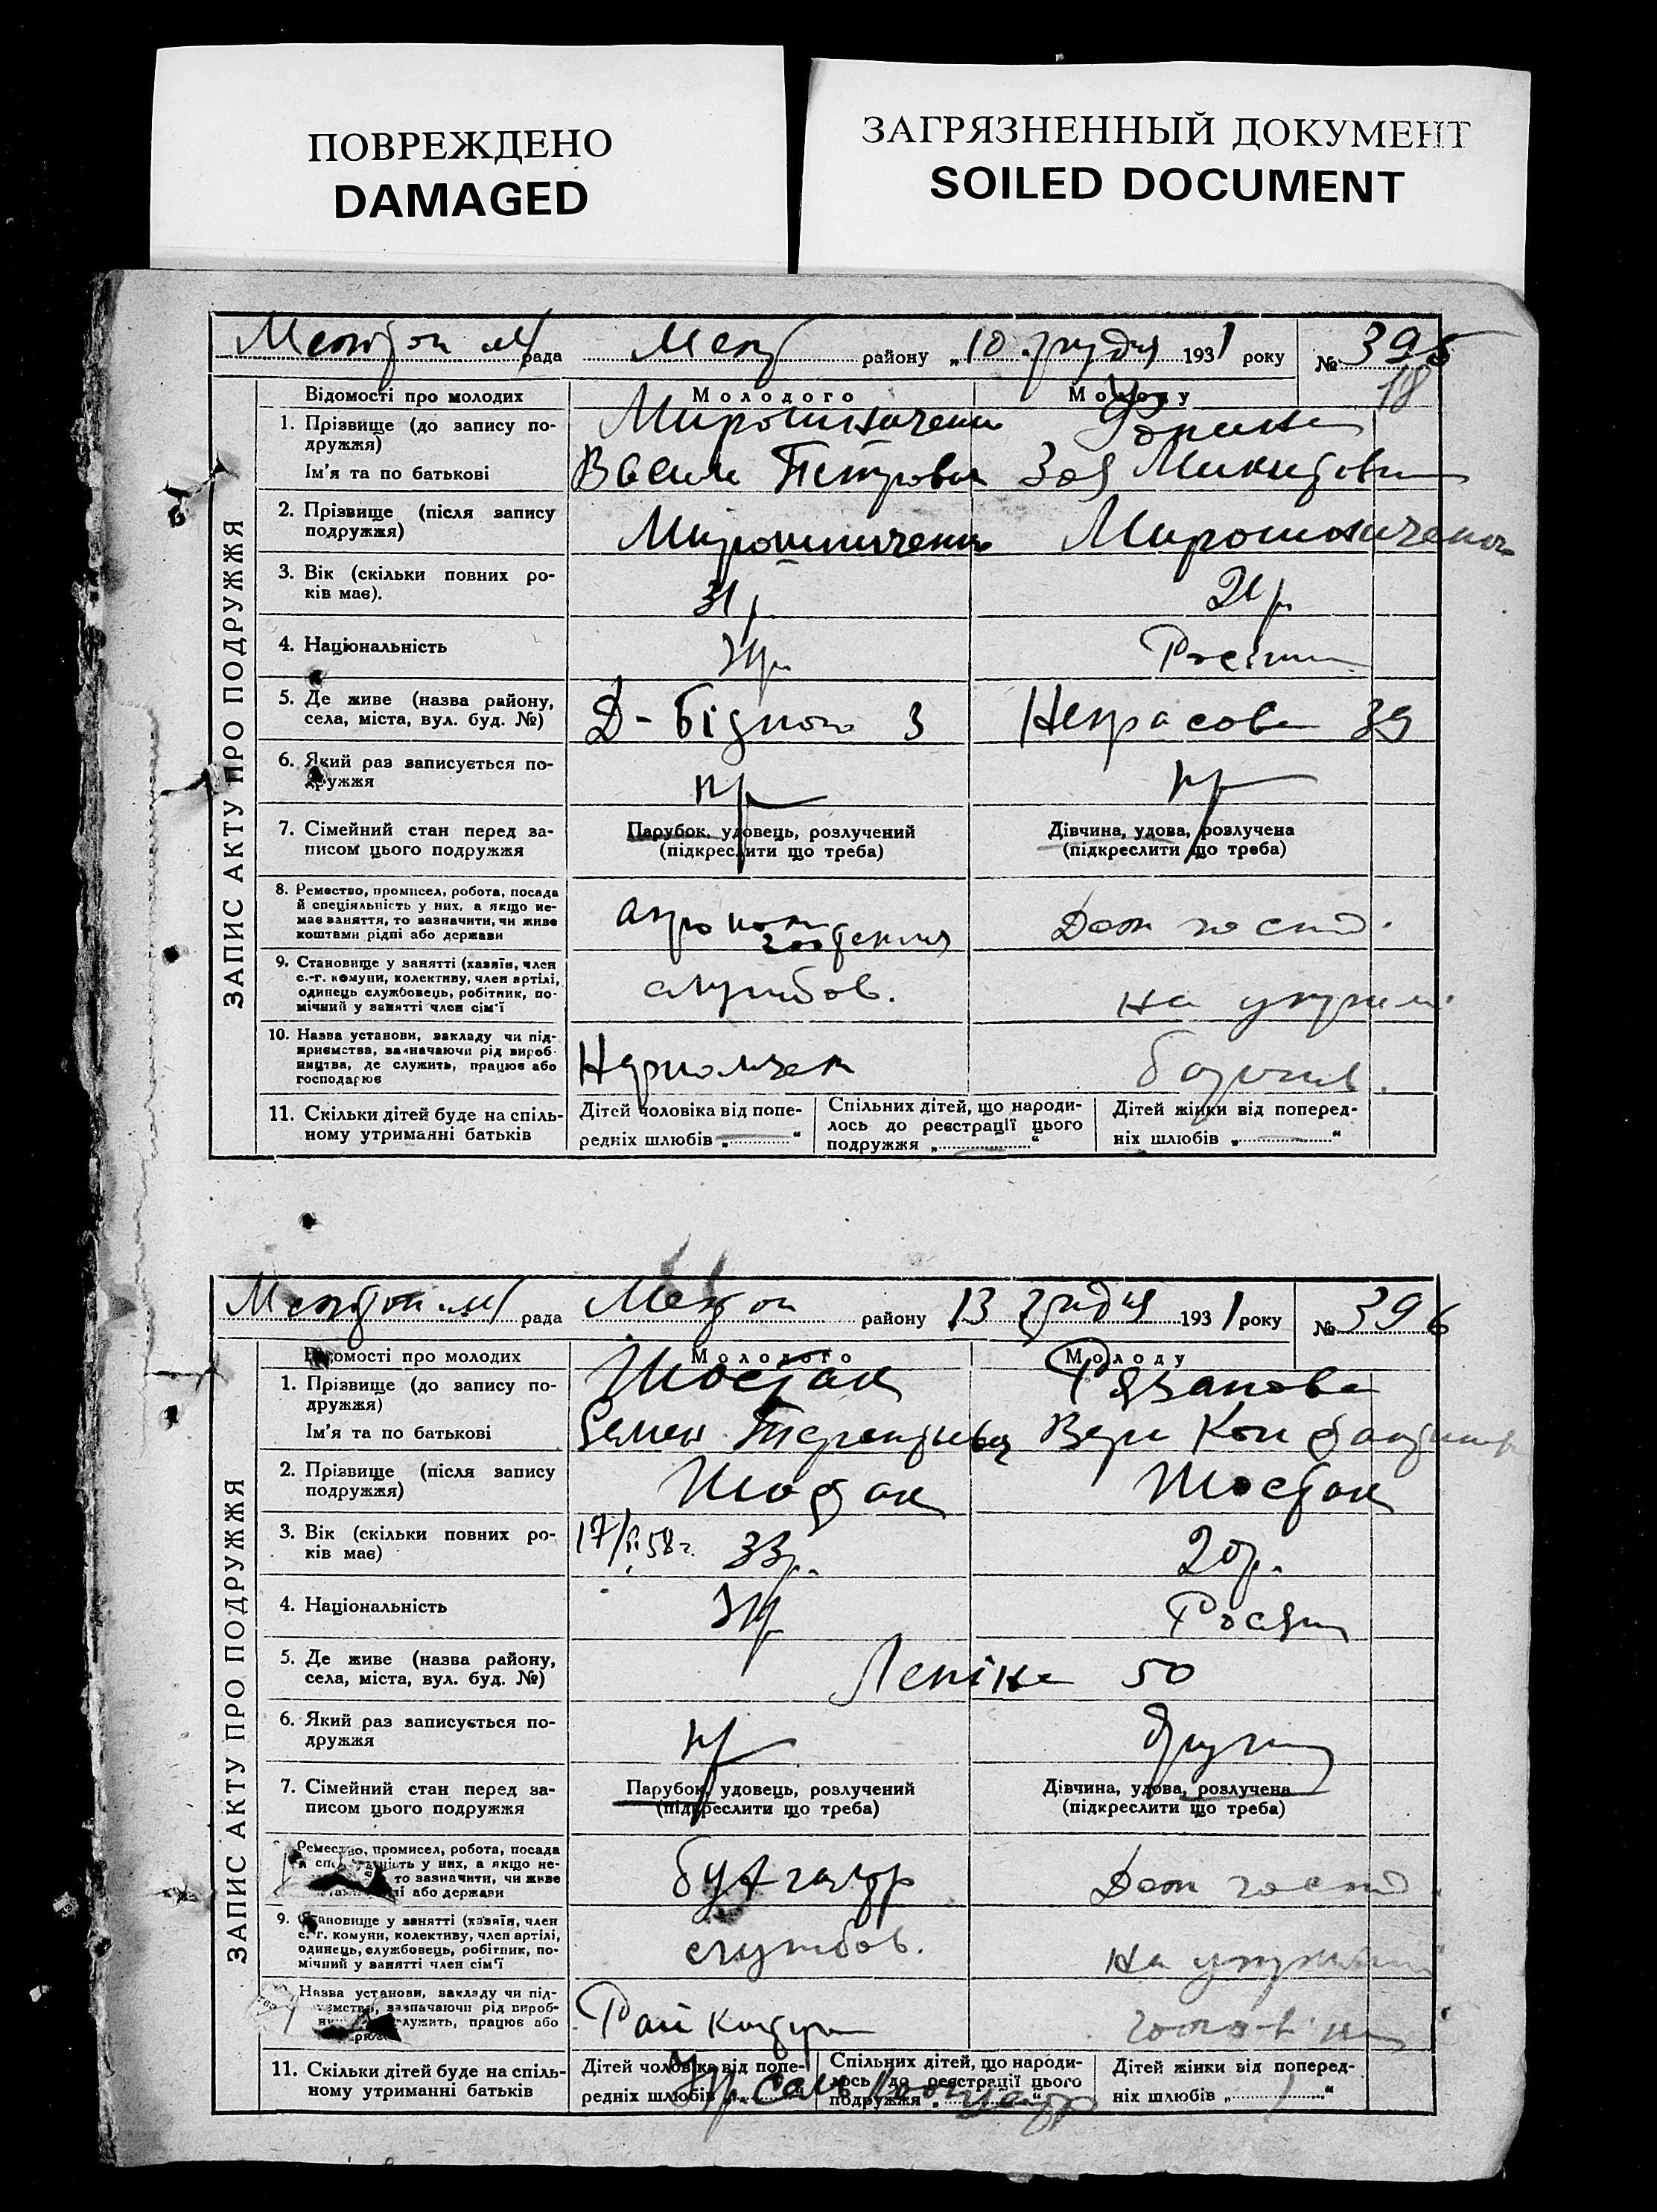 ПОВРЕЖДЕНО
DAMAGED
ЗАГРЯЗНЕННЫЙ ДОКУМЕНТ
SOILED DOCUMENT
рада району „10 грудня 1931 року № 395
18
ЗАПИС АКТУ ПРО ПОДРУЖЖЯ
Відомості про молодих Молодого Молоду
1. Прізвище (до запису по-
дружжя) Мирошниченко
Ім'я та по батькові Василь Петрович Зоя Микитовна
2. Прізвище (після запису
подружжя) Мирошниченко Мирошниченко
3. Вік (скільки повних ро-
ків має). 31 р 21 р
4. Національність Укр
5. Де живе (назва району,
села, міста, вул. буд. №) Д-Бідного 3 Некрасова 39
6. Який раз записується по-
дружжя пр пр
7. Сімейний стан перед за-
писом цього подружжя
Парубок, удовець, розлучений
(підкреслити що треба)
Дівчина, удова, розлучена
(підкреслити що треба)
8. Ремество, промисел, робота, посада
й спеціяльність у них, а якщо не-
має заняття, то зазначити, чи живе
коштами рідні або держави
Дом госпо.
9. Становище у занятті (хазяїн, член
с.-г. комуни, колективу, член артілі,
одинець службовець, робітник, по-
мічний у занятті член сім'ї
службов. на утрим.
10. Назва установи, закладу чи під-
приємства, зазначаючи рід вироб-
ництва, де служить, працює або
господарює
батьків.
11. Скільки дітей буде на спіль-
ному утриманні батьків
Дітей чоловіка від попе-
редніх шлюбів „ — “
Спільних дітей, що народи-
лось до реєстрації цього
подружжя „ — “
Дітей жінки від поперед-
ніх шлюбів „ — “
рада району 13 грудня 1931 року № 396
ЗАПИС АКТУ ПРО ПОДРУЖЖЯ
Відомості про молодих Молодого Молоду
1. Прізвище (до запису по-
дружжя) Шостак Рязанова
Ім'я та по батькові Семен Терентьевич Вера
2. Прізвище (після запису
подружжя) Шостак Шостак
3. Вік (скільки повних ро-
ків має) 33р. 20р.
4. Національність Укр
5. Де живе (назва району,
села, міста, вул. буд. №) Леніна 50
6. Який раз записується по-
дружжя пр другий
7. Сімейний стан перед за-
писом цього подружжя
Парубок, удовець, розлучений
(підкреслити що треба)
Дівчина, удова, розлучена
(підкреслити що треба)
Ремество, промисел, робота, посада
у них, а якщо не-
то зазначити, чи живе
або держави
бухгалтр Дом госпо.
9. Становище у занятті (хазяїн, член
с.-г. комуни, колективу, член артілі,
одинець, службовець, робітник, по-
мічний у занятті член сім'ї
службов. на утриманні
Назва установи, закладу чи під-
зазначаючи рід вироб-
служить, працює або
чоловіка
11. Скільки дітей буде на спіль-
ному утриманні батьків
Дітей чоловіка від попе-
редніх шлюбів
Спільних дітей, що народи-
лось до реєстрації цього
подружжя
Дітей жінки від поперед-
ніх шлюбів „ “